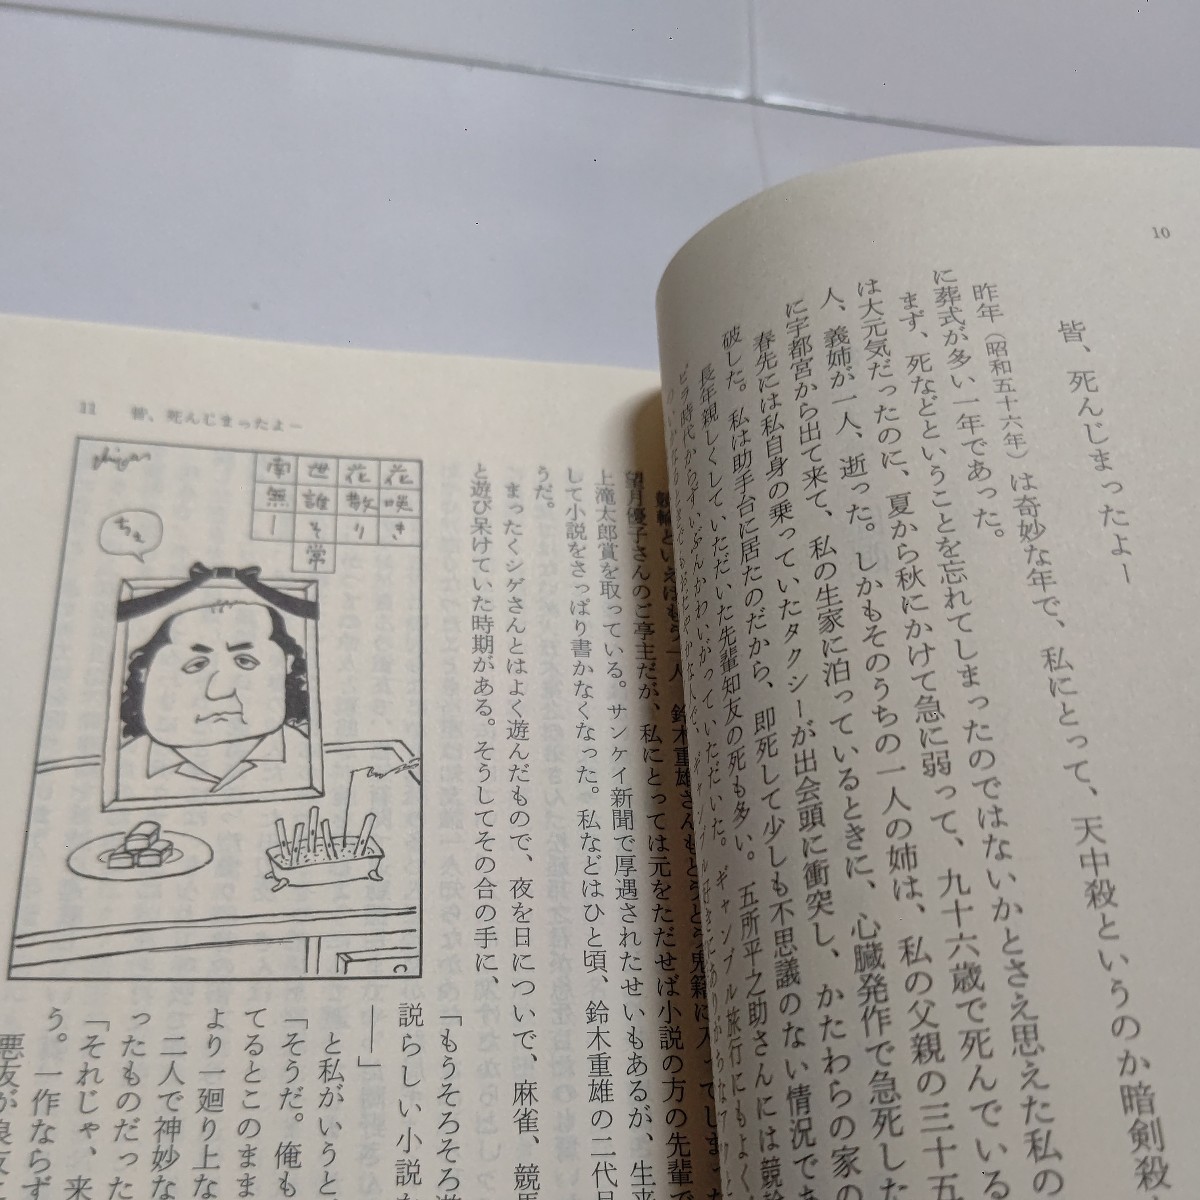 10
皆、死んじまったよー
昨年（昭和五十六年）は奇妙な年で、私にとって、天中殺というのか暗剣殺
に葬式が多い一年であった。
まず、死などということを忘れてしまったのではないかとさえ思えた私の
は大元気だったのに、夏から秋にかけて急に弱って、九十六歳で死んでいる
人、義姉が一人、逝った。しかもそのうちの一人の姉は、私の父親の三十五
に宇都宮から出て来て、私の生家に泊っているときに、心臓発作で急死した
春先には私自身の乗っていたタクシーが出会頭に衝突し、かたわらの家の
破した。私は助手台に居たのだから、即死して少しも不思議のない情況であ
長年親しくしていただいた先輩知友の死も多い。五所平之助さんには競輪
ずいぶんかわいがっていただいた。ギャンブル旅行にもよく
11 皆、死んじまったよー
花咲き
花散り
世誰そ常
南無ー
ちぇ
鈴木重雄さんもとうとう鬼籍に入ってしまった
望月優子さんのご亭主だが、私にとっては元をただせば小説の方の先輩で
上滝太郎賞を取っている。サンケイ新聞で厚遇されたせいもあるが、生来
して小説をさっぱり書かなくなった。私などはひと頃、鈴木重雄の二代目
うだ。
まったくシゲさんとはよく遊んだもので、夜を日についで、麻雀、競馬
と遊び呆けていた時期がある。そうしてその合の手に、
「もうそろそろ遊
説らしい小説を
――」
と私がいうと
「そうだ。俺も
てるとこのまま
より一廻り上な
二人で神妙な
ったものだった
「それじゃ、来
う。一作ならず
悪友が良友に